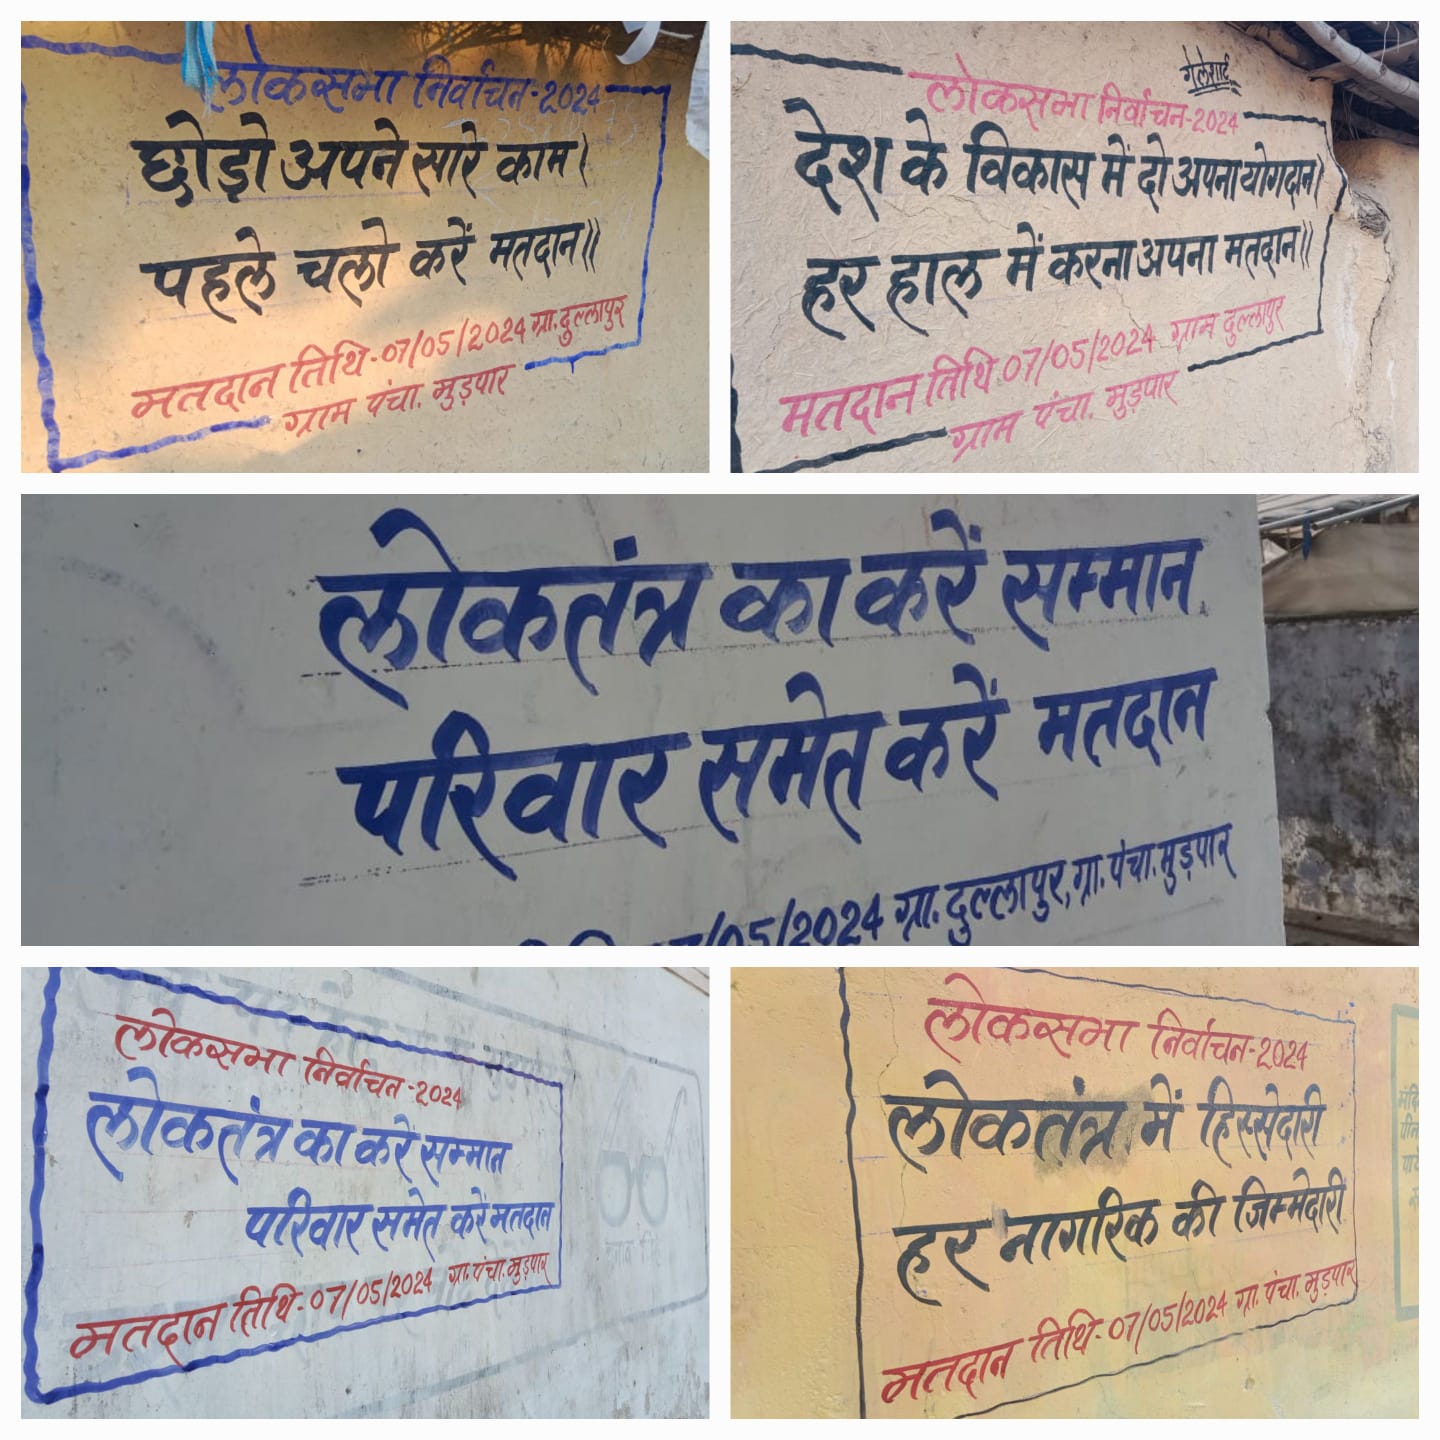 लोकसभा निर्वाचन-2024
छोड़ो अपने सारे काम।
पहले चलो करें मतदान॥
मतदान तिथि-07/05/2024 ग्रा.दुल्लापुर
ग्राम पंचा. मुड़पार
लोकसभा निर्वाचन-2024
देश के विकास में दो अपना योगदान।
हर हाल में करना अपना मतदान॥
मतदान तिथि 07/05/2024 ग्राम दुल्लापुर
ग्राम पंचा. मुड़पार
लोकतंत्र का करें सम्मान
परिवार समेत करें मतदान
/05/2024 ग्रा.दुल्लापुर,ग्रा.पंचा.मुड़पार
लोकसभा निर्वाचन-2024
लोकतंत्र का करें सम्मान
परिवार समेत करें मतदान
मतदान तिथि-07/05/2024 ग्रा.पंचा.मुड़पार
लोकसभा निर्वाचन-2024
लोकतंत्र में हिस्सेदारी
हर नागरिक की जिम्मेदारी
मतदान तिथि-07/05/2024 ग्रा. पंचा. मुड़पार